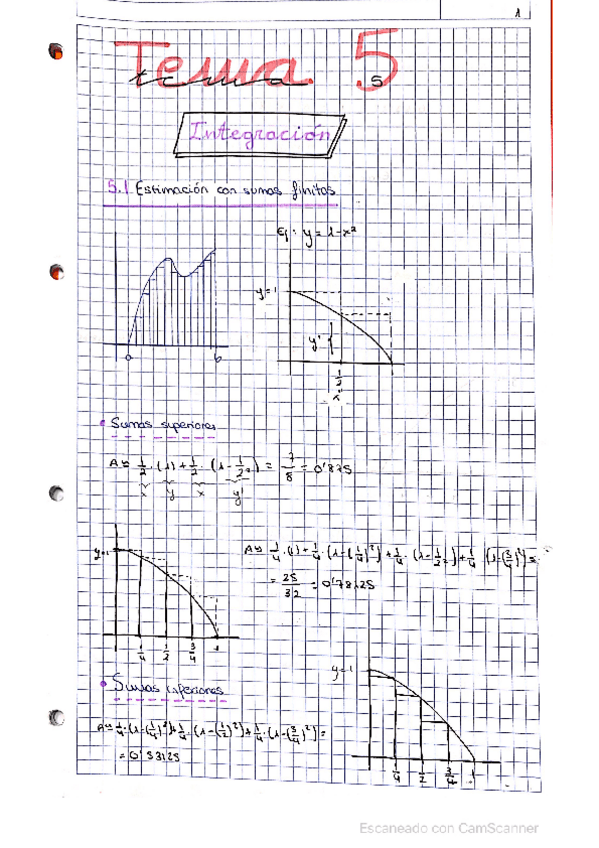 1
Tema 5
tema 5
Integración
5.1 Estimación con sumas finitas
Ej: y = 1-x²
y=1
y'
1/2
x'
a b
• Sumas superiores
A≈ 1/2 · (1) + 1/2 · (1 - 1/2²) = 7/8 = 0'875
x y x y'
y=1
A≈ 1/4 · (1) + 1/4 · (1-(1/4)²) + 1/4 · (1-1/2²) + 1/4 (1-(3/4)²) =
= 25/32 = 0'78125
1/4 1/2 3/4 1
y=1
• Sumas inferiores
A≈ 1/4 · (1-(1/4)²) + 1/4 · (1-(1/2)²) + 1/4 · (1-(3/4)²) =
= 0'53125
1/4 1/2 3/4 1
Escaneado con CamScanner